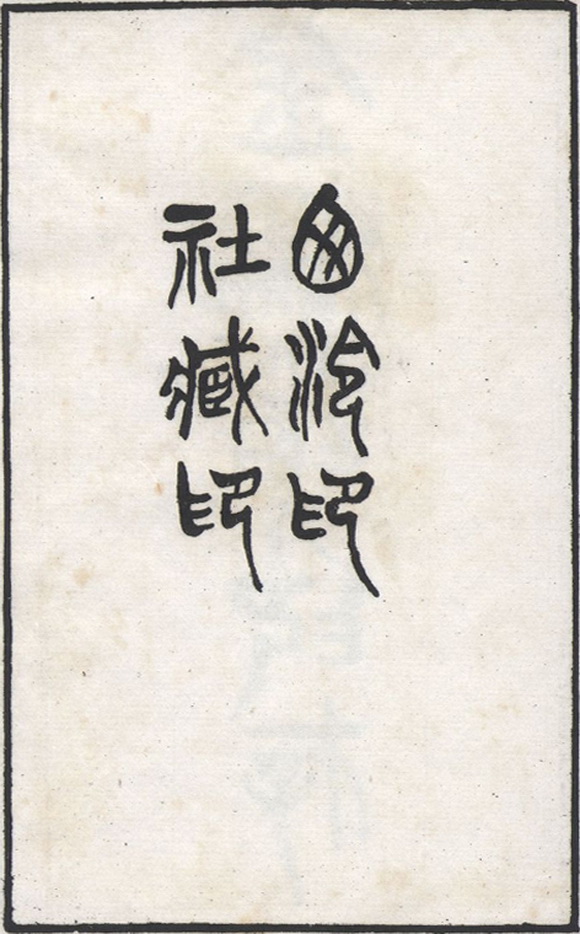 西泠印
社藏印